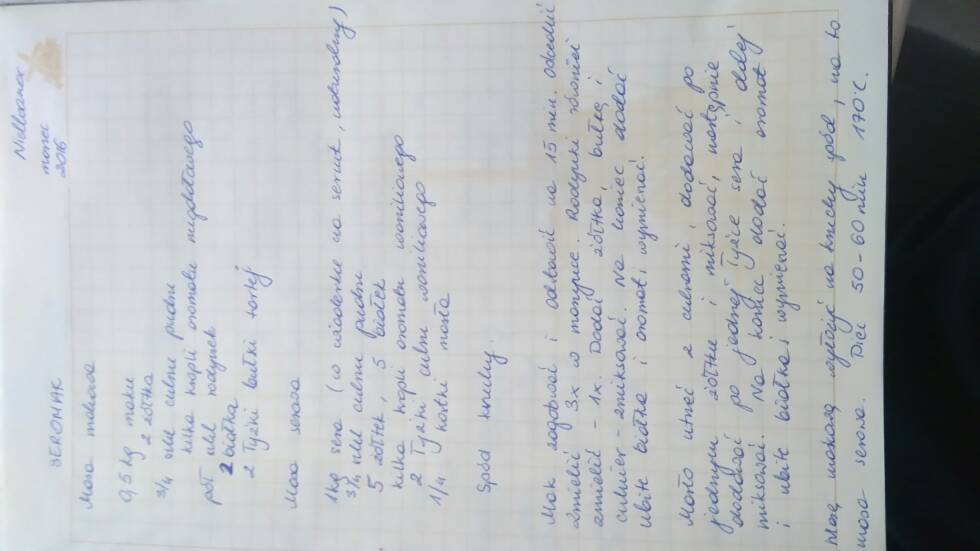 Wielkanoc
marzec
2016
SEROMAK
Masa makowa
0,5 kg maku
2 żółtka
3/4 szkl cukru pudru
kilka kropli aromatu migdałowego
pół szkl rodzynek
2 białka
2 łyżki bułki tartej
Masa serowa
1kg sera (w wiaderku na sernik,
3/4 szkl cukru pudru
5 żółtek, 5 białek
kilka kropli aromatu waniliowego
2 łyżki cukru waniliowego
1/4 kostki masła
Spód kruchy.
Mak zagotować i odstawić na 15 min. Odcedzić
zmielić 3x w maszynce. Rodzynki również
zmielić - 1x. Dodać żółtka, bułkę i
cukier - zmiksować. Na koniec dodać
ubite białka i aromat i wymieszać.
Masło utrzeć z cukrami, dodawać po
jednym żółtku i miksować, następnie
dodawać po jednej łyżce sera i dalej
miksować. Na koniec dodać aromat
i ubite białka i wymieszać.
Masę makową wyłożyć na kruchy spód, na to
masa serowa. Piec 50-60 min 170°C.